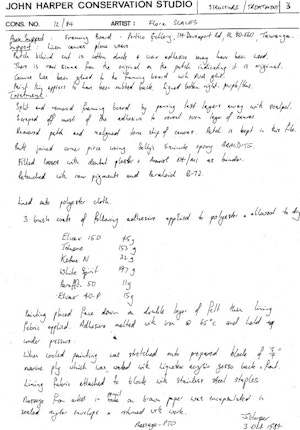 JOHN HARPER CONSERVATION STUDIO STRUCTURE TREATMENT 3
CONS. NO. 12/84 ARTIST: Flora SCALES
Aux Support: Framing Board - Artice Gallery, 134 Devonport Rd, Tauranga.
Support: Linen canvas plain weave
Patch behind but is cotton duck & wax adhesive may have been used.
There is raw sienna from the original on the patch indicating it is original.
Canvas has been glued to the framing board with PVA glue.
Paint may appears to have been rubbed back. Signed bottom right. purple/blue.
Treatment.
Split and removed framing board by paring last layers away with scalpel.
Scraped off most of the adhesive to reveal even layer of canvas.
Removed patch and realigned loose strip of canvas. Patch is kept in this file.
Butt joined corner piece using Selleys 5 minute epoxy ARALDITE.
Filled losses with dental plaster + as binder.
Retouched with raw pigments and Paraloid B-72.
Lined onto polyester cloth.
3 brush coats of following adhesive applied to polyester & allowed to dry
Elvax 150 45g
Toluene 153g
Ketone N 33g
White Spirit 197g
Paraffin 50 11g
Elvax 40-P 15g
Painting placed face down on double layer of felt then lining
fabric applied. Adhesive melted with iron @ 65°c and held
under pressure.
When cooled painting was stretched onto prepared blocks of 3/4"
marine ply which was sealed with Liquitex acrylic gesso back & front.
Lining Fabric attached to blocks with stainless steel staples
Message from artist in on brown paper was encapsulated in
sealed mylar envelope & returned with work.
Message - PTO
J Harper
3 Oct 1984